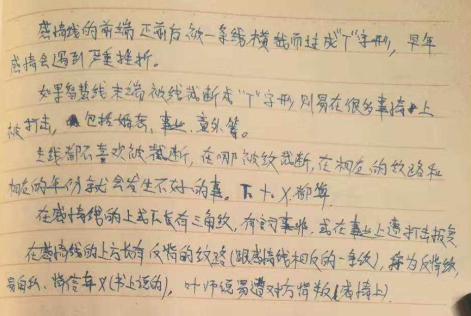 感情线的前端正前后被一条线横截而过成"T"字形，早年
感情会遇到严重挫折。
如果智慧线末端被线截断成"T"字形则易在很多事情上
被打击，包括婚姻、事业、意外等。
主线都不喜欢被截断，在哪被纹截断，在相应的纹路和
相应的年份就会发生不好的事。T、十、X都算
在感情线的上或下长有三角纹，有官司事非，或在事业上遭打击报复
在感情线的上方长有反情的纹路(跟感情线相反的一条纹)，称为反情纹，
易自私、情信弃义(书上说的)，叶师说易遭对方情叛(感情上)